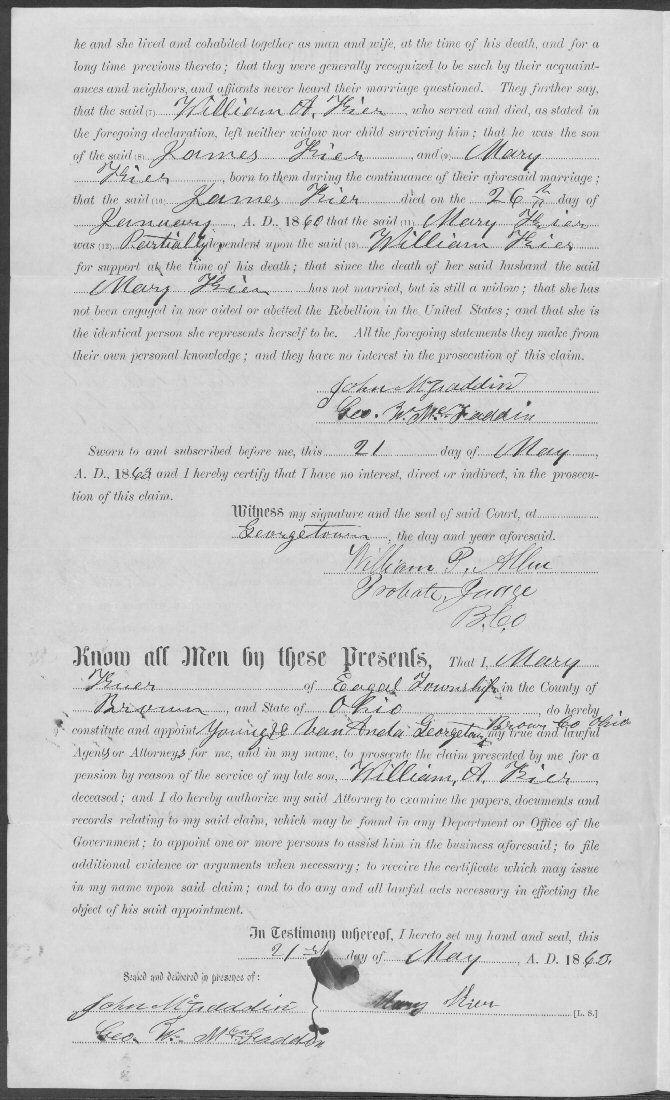 he and she lived and cohabited together as man and wife, at the time of his death, and for a
long time previous thereto; that they were generally recognized to be such by their acquaint-
ances and neighbors, and affiants never heard their marriage questioned. They further say,
that the said (7) William A. Kier, who served and died, as stated in
the foregoing declaration, left neither widow nor child surviving him; that he was the son
of the said (8) James Kier, and (9) Mary
Kier, born to them during the continuance of their aforesaid marriage;
that the said (10) James Kier died on the 26th day of
January, A. D., 1860 that the said (11) Mary Kier
was (12) Partially dependent upon the said (13) William Kier
for support at the time of his death; that since the death of her said husband the said
Mary Kier has not married, but is still a widow; that she has
not been engaged in nor aided or abetted the Rebellion in the United States; and that she is
the identical person she represents herself to be. All the foregoing statements they make from
their own personal knowledge; and they have no interest in the prosecution of this claim.
John McFaddin
Geo. W. McFaddin
Sworn to and subscribed before me, this 21 day of May,
A. D., 1863 and I hereby certify that I have no interest, direct or indirect, in the prosecu-
tion of this claim.
Witness my signature and the seal of said Court, at
Georgetown, the day and year aforesaid.
William P. Allen
Probate Judge
B. Co
Know all Men by these Presents, That I, Mary
Kier of Eagel Township in the County of
Brown, and State of Ohio do hereby
constitute and appoint Young & Van Anda Georgetown Brown Co Ohio my true and lawful
Agents or Attorneys for me, and in my name, to prosecute the claim presented by me for a
pension by reason of the service of my late son, William, A. Kier,
deceased; and I do hereby authorize my said Attorney to examine the papers, documents and
records relating to my said claim, which may be found in any Department or Office of the
Government; to appoint one or more persons to assist him in the business aforesaid; to file
additional evidence or arguments when necessary; to receive the certificate which may issue
in my name upon said claim; and to do any and all lawful acts necessary in effecting the
object of his said appointment.
In Testimony whereof, I hereto set my hand and seal, this
21st day of May, A. D. 1863.
Sealed and delivered in presence of:
John McFaddin Mary Kier [L. S.]
Geo. W. McFaddin